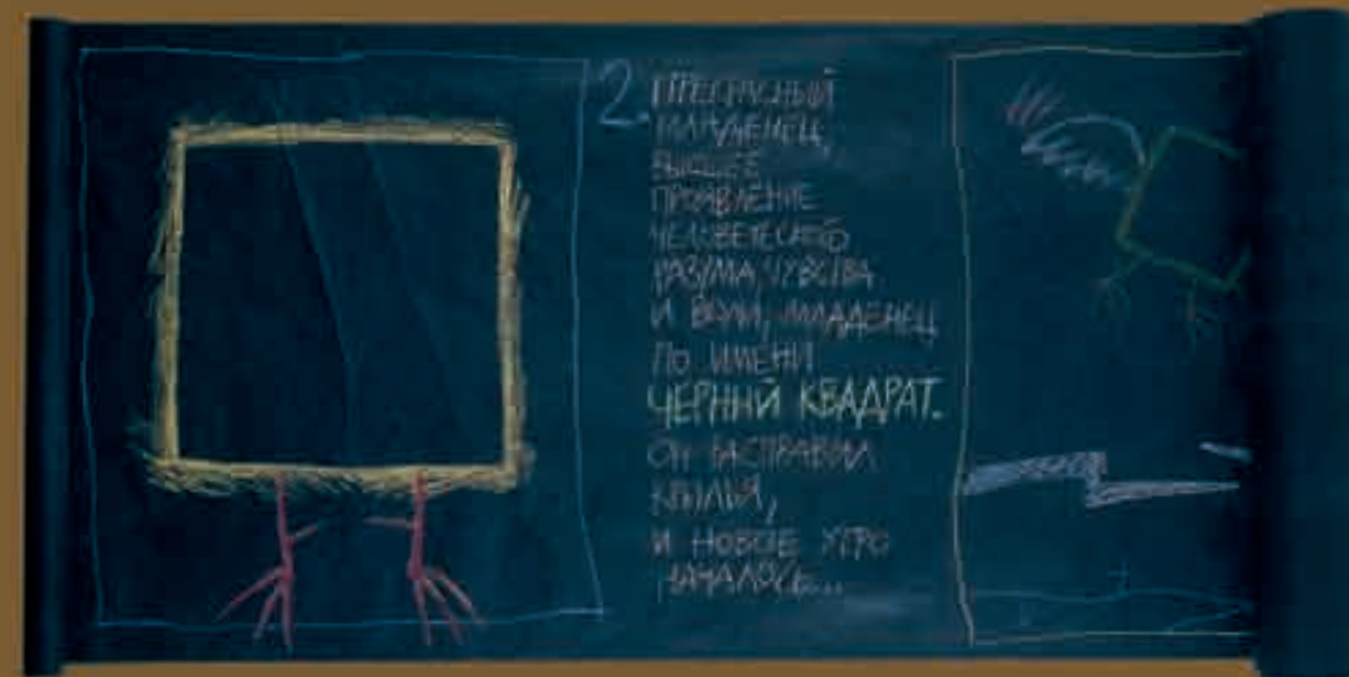 2.
ПРЕКРАСНЫЙ
МЛАДЕНЕЦ,
ВЫСШЕЕ
ПРОЯВЛЕНИЕ
ЧЕЛОВЕЧЕСКОГО
РАЗУМА, ЧУВСТВА
И ВОЛИ, МЛАДЕНЕЦ
ПО ИМЕНИ
ЧЕРНЫЙ КВАДРАТ.
ОН РАСПРАВИЛ
КРЫЛЬЯ,
И НОВОЕ УТРО
НАЧАЛОСЬ...